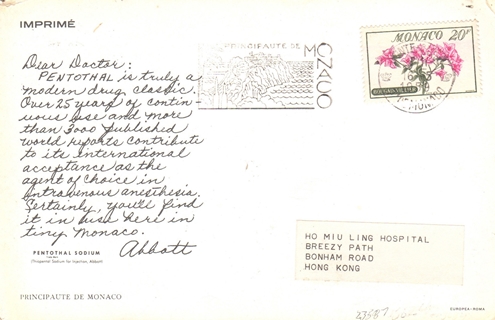 IMPRIMÉ
Dear Doctor:
PENTOTHAL is truly a
modern drug classic.
Over 25 years of contin-
uous use and more
than 3000 published
world reports contribute
to its international
acceptance as the
agent of choice in
intravenous anesthesia.
Certainly, you'll find
it in use here in
tiny Monaco.
Abbott
PENTOTHAL SODIUM
(Thiopental Sodium for Injection, Abbott)
PRINCIPAUTE DE MONACO
PRINCIPAUTÉ DE
MONACO
MONACO 20F
BOUGAINVILLÉE
HO MIU LING HOSPITAL
BREEZY PATH
BONHAM ROAD
HONG KONG
EUROPEA - ROMA